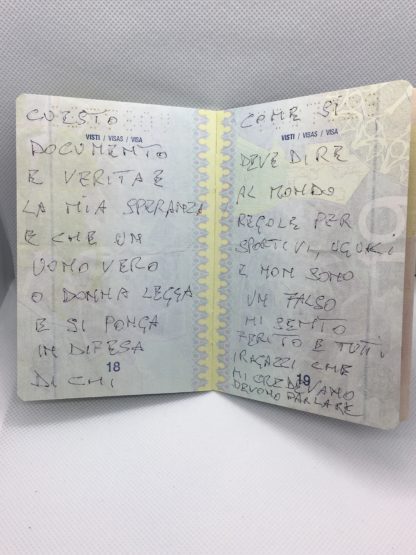 CUESTO
VISTI / VISAS / VISA
DOCUMENTO
E VERITA E
LA MIA SPERANZA
E CHE UN
UOMO VERO
O DONNA LEGGA
E SI PONGA
IN DIFESA
DI CHI
18
COME SI
VISTI / VISAS / VISA
DEVE DIRE
AL MONDO
REGOLE PER
SPORTIVI, UGUALI
E NON SONO
UN FALSO
MI SENTO
FERITO E TUTTI
I RAGAZZI CHE
MI CREDEVANO
19
DEVONO PARLARE